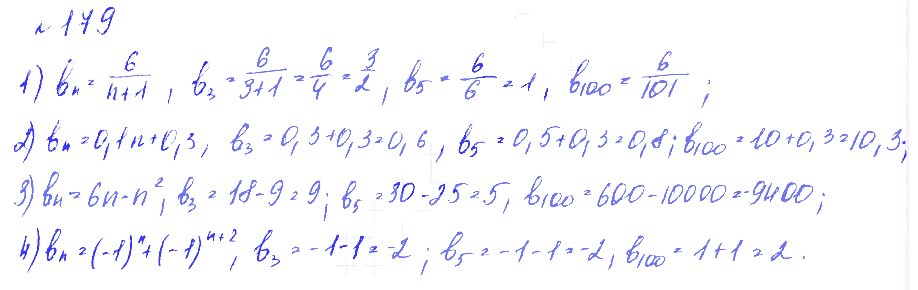 №179
1) bₙ = 6/(n+1), b₃ = 6/(3+1) = 6/4 = 3/2, b₅ = 6/6 = 1, b₁₀₀ = 6/101;
2) bₙ = 0,1n+0,3, b₃ = 0,3+0,3=0,6, b₅ = 0,5+0,3=0,8; b₁₀₀ = 10+0,3=10,3;
3) bₙ = 6n-n², b₃ = 18-9=9; b₅ = 30-25=5, b₁₀₀ = 600-10000=-9400;
4) bₙ = (-1)ⁿ+(-1)ⁿ⁺², b₃ = -1-1=-2; b₅ = -1-1=-2, b₁₀₀ = 1+1=2.